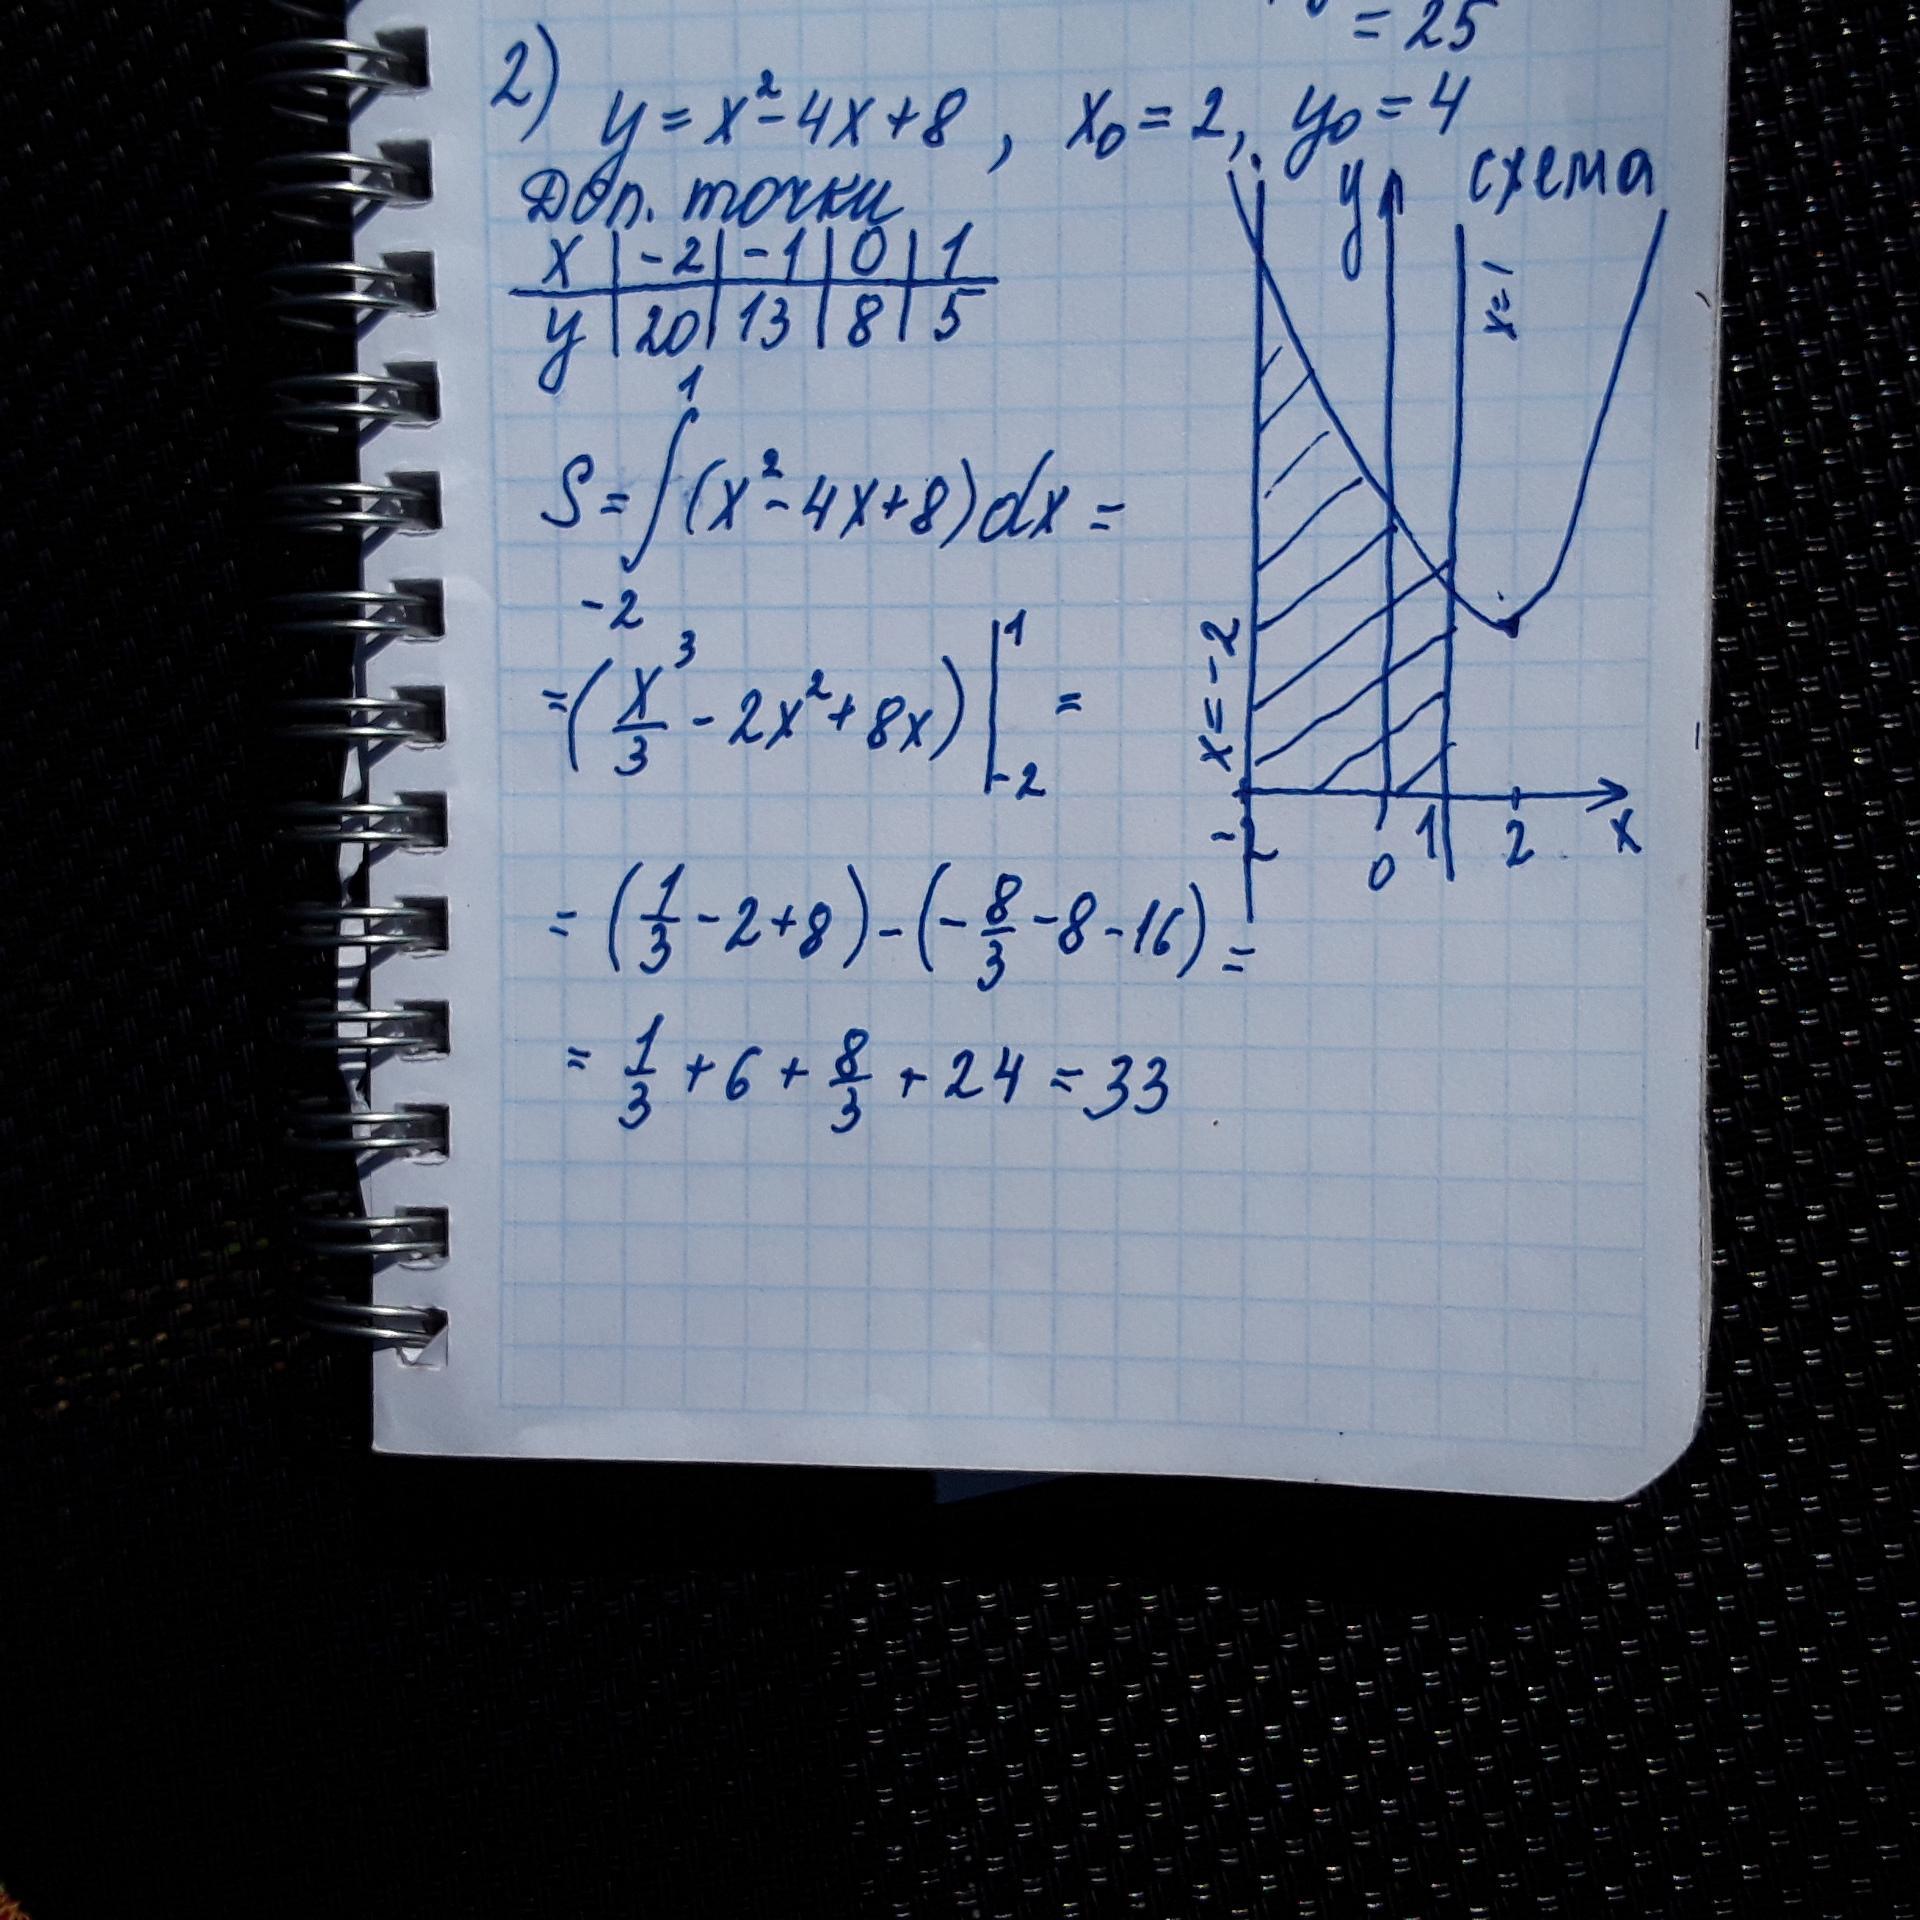 = 25
2) y = x² - 4x + 8, x₀ = 2, y₀ = 4
Доп. точки
x | -2 | -1 | 0 | 1
y | 20 | 13 | 8 | 5
S = ∫₋₂¹ (x² - 4x + 8) dx =
= (x³/3 - 2x² + 8x) |₋₂¹ =
= (1/3 - 2 + 8) - (-8/3 - 8 - 16) =
= 1/3 + 6 + 8/3 + 24 = 33
схема
y
x = 1
x = -2
-2 0 1 2 x